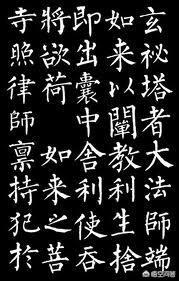 玄祕塔者大法師端
如来以闡教利生捨
即出囊中舍利使吞
將欲荷　如来之菩
寺照律師禀持犯於
悟空问答